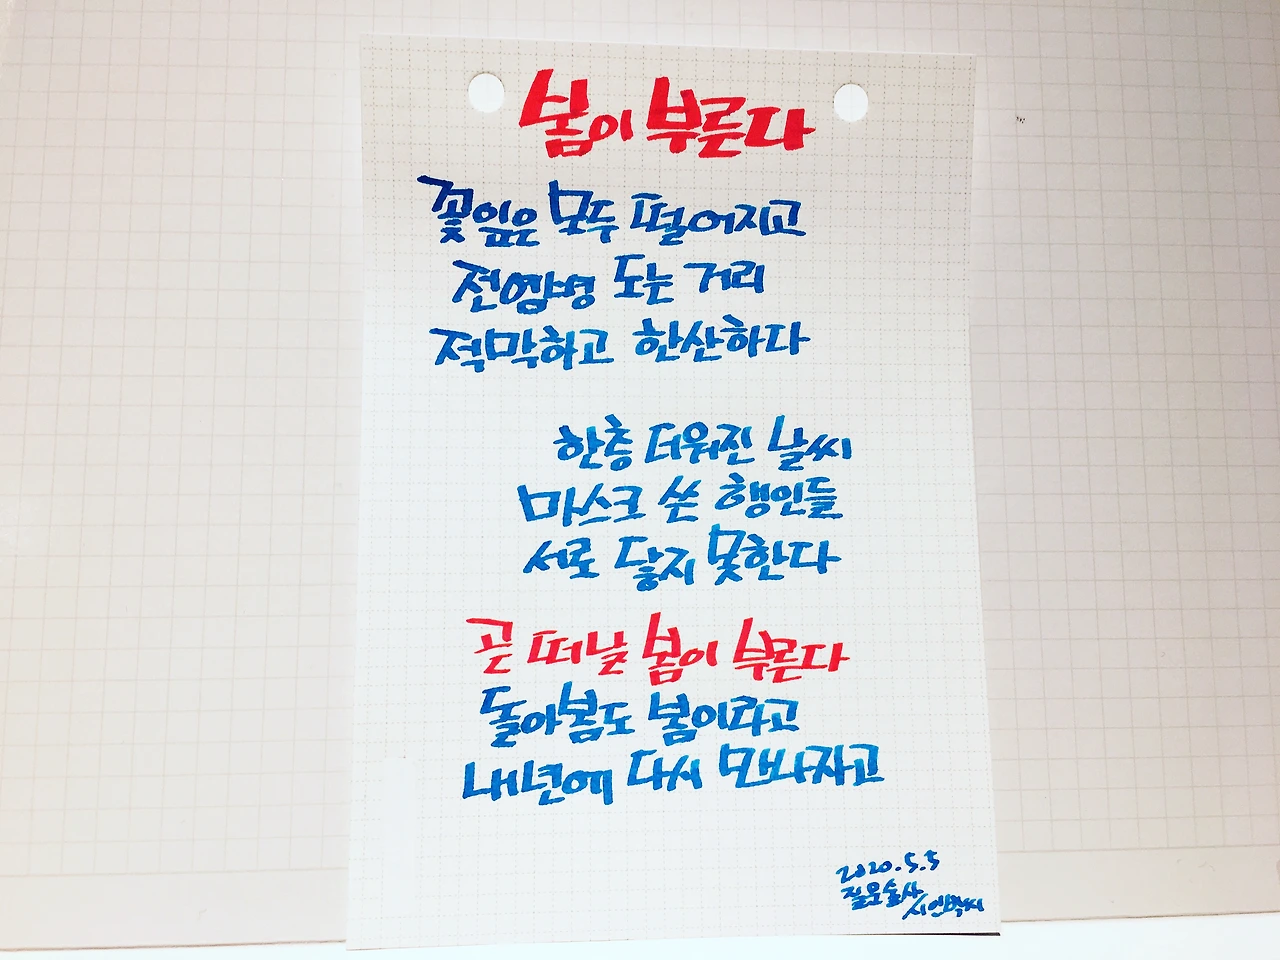 봄이 부른다
꽃잎은 모두 떨어지고
전염병 도는 거리
적막하고 한산하다
한층 더워진 날씨
마스크 쓴 행인들
서로 닿지 못한다
곧 떠날 봄이 부른다
돌아봄도 봄이라고
내년에 다시 만나자고
2020.5.5
질문술사
/시인박씨